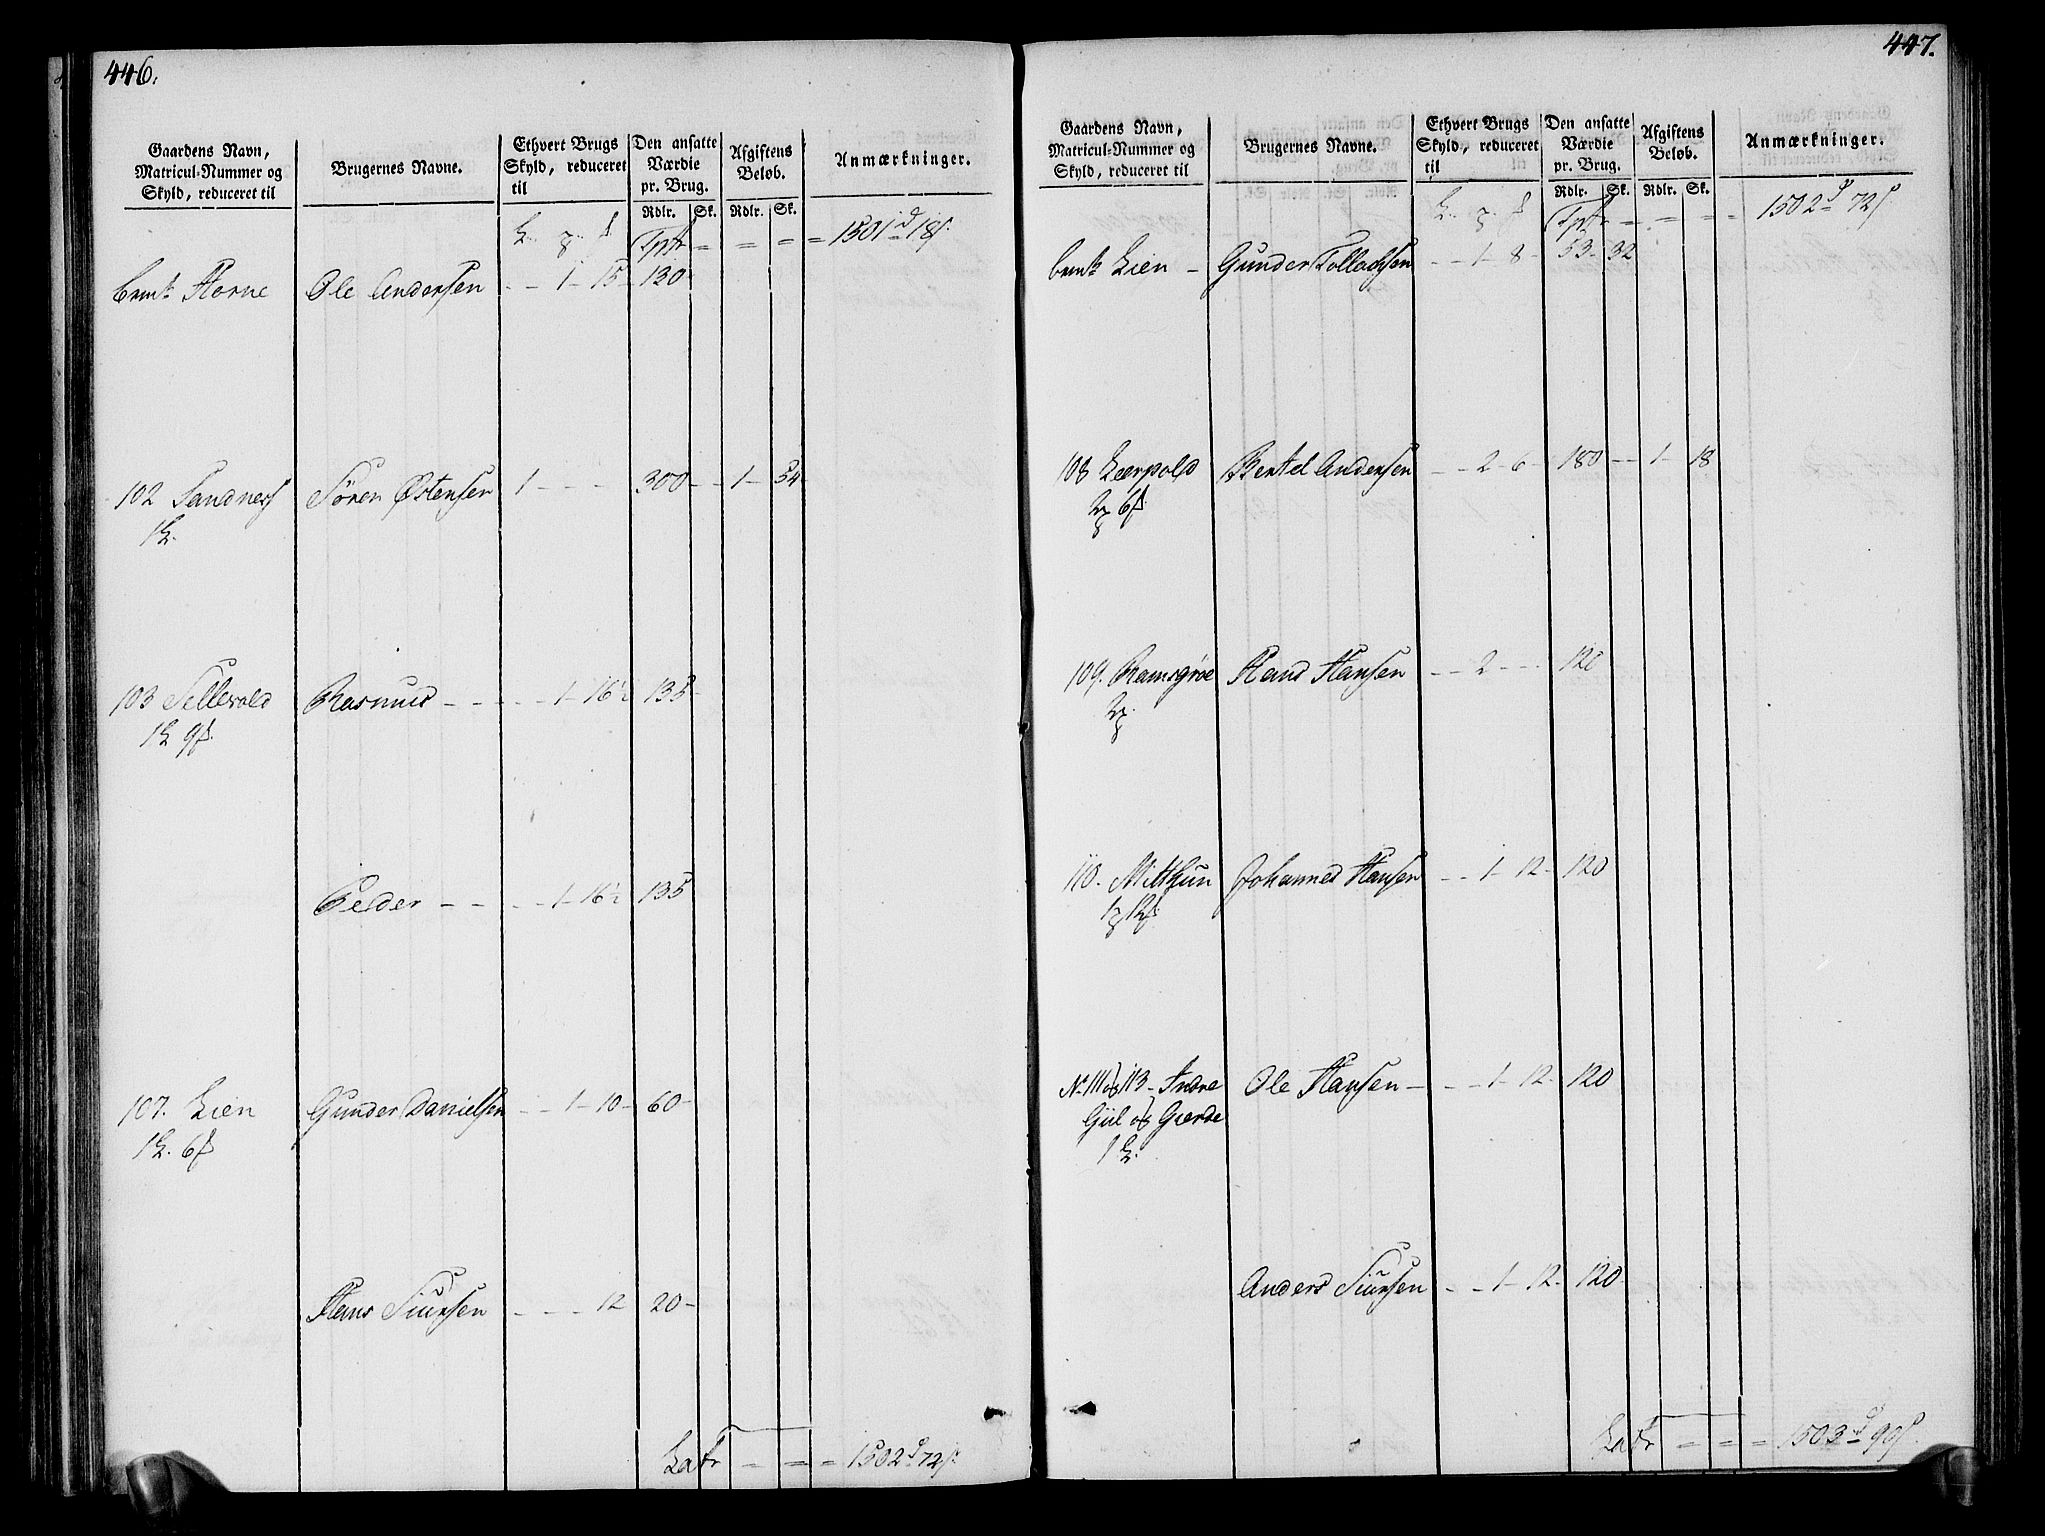 446.
Gaardens Navn, Matricul-Nummer og Skyld, reduceret til
Brugernes Navne.
Ethvert Brugs Skyld, reduceret til
Den ansatte Værdie pr. Brug.
Rdlr. Sk.
Afgiftens Beløb.
Rdlr. Sk.
Anmærkninger.
Tptr = = = = 1501 d 18 s.
bemte Horne Ole Andersen - - 1 - 15 - 130
102 Sandness Sören Østensen 1 - - - 300 - - 1 - 54
1 L.
103 Sellevold Rasmus - - - - - 1 - 16½ 135
1 L 9 s.
Peder - - - - 1 - 16½ 135
107. Lien Gunder Danielsen - - 1 - 10 - 60 -
1 L. 6 s
Hans Siursen - - - 12 20 -
Latr = = = 1502 d 72 s.
447.
Gaardens Navn, Matricul-Nummer og Skyld, reduceret til
Brugernes Navne.
Ethvert Brugs Skyld, reduceret til
Den ansatte Værdie pr. Brug.
Rdlr. Sk.
Afgiftens Beløb.
Rdlr. Sk.
Anmærkninger.
Tptr = = = = 1502 d 72 s.
bemte Lien - Gunder Tollachsen - - 1 - 8 - 53 - 32
108 Leerpold Bertel Andersen - - 2 - 6 - 180 - - 1 - 18
6 s
109. Ramsgröe Hans Hansen - - 2 - - - 120
110. Mitthun Johannes Hansen - - 1 - 12 - 120
12 s.
No 111 og 113 - Indre Ole Hansen - - - 1 - 12 - 120
Giil og Gierde
1 L.
Anders Siursen - - 1 - 12 - 120
Latr = = = 1503 d 90 s.